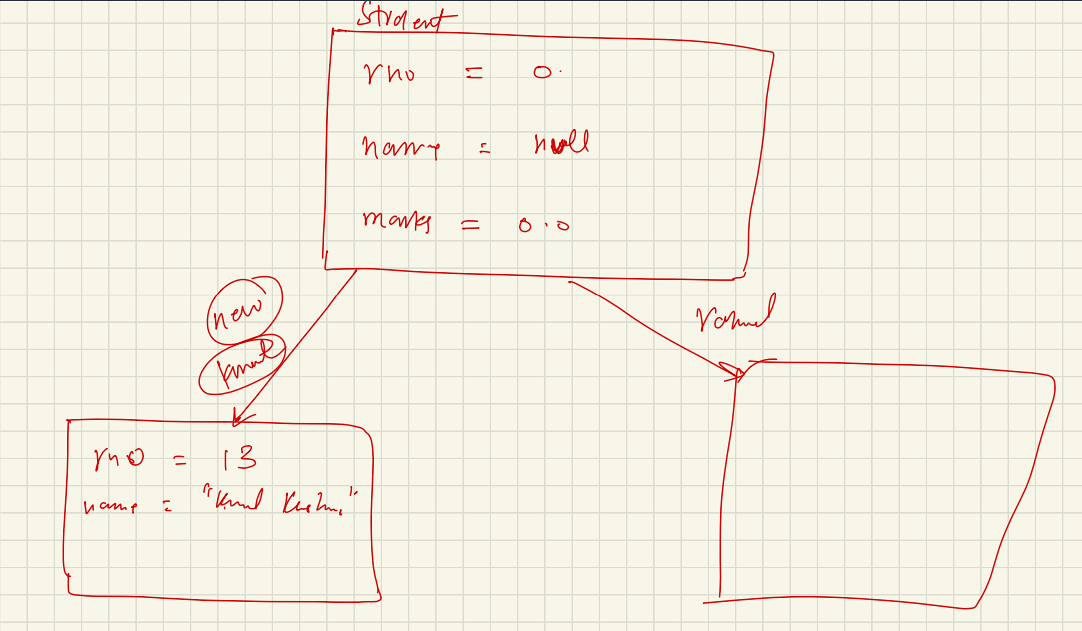 Student
rno = 0.
name = null
marks = 0.0
new
Kunal
Rahul
rno = 13
name = "Kunal